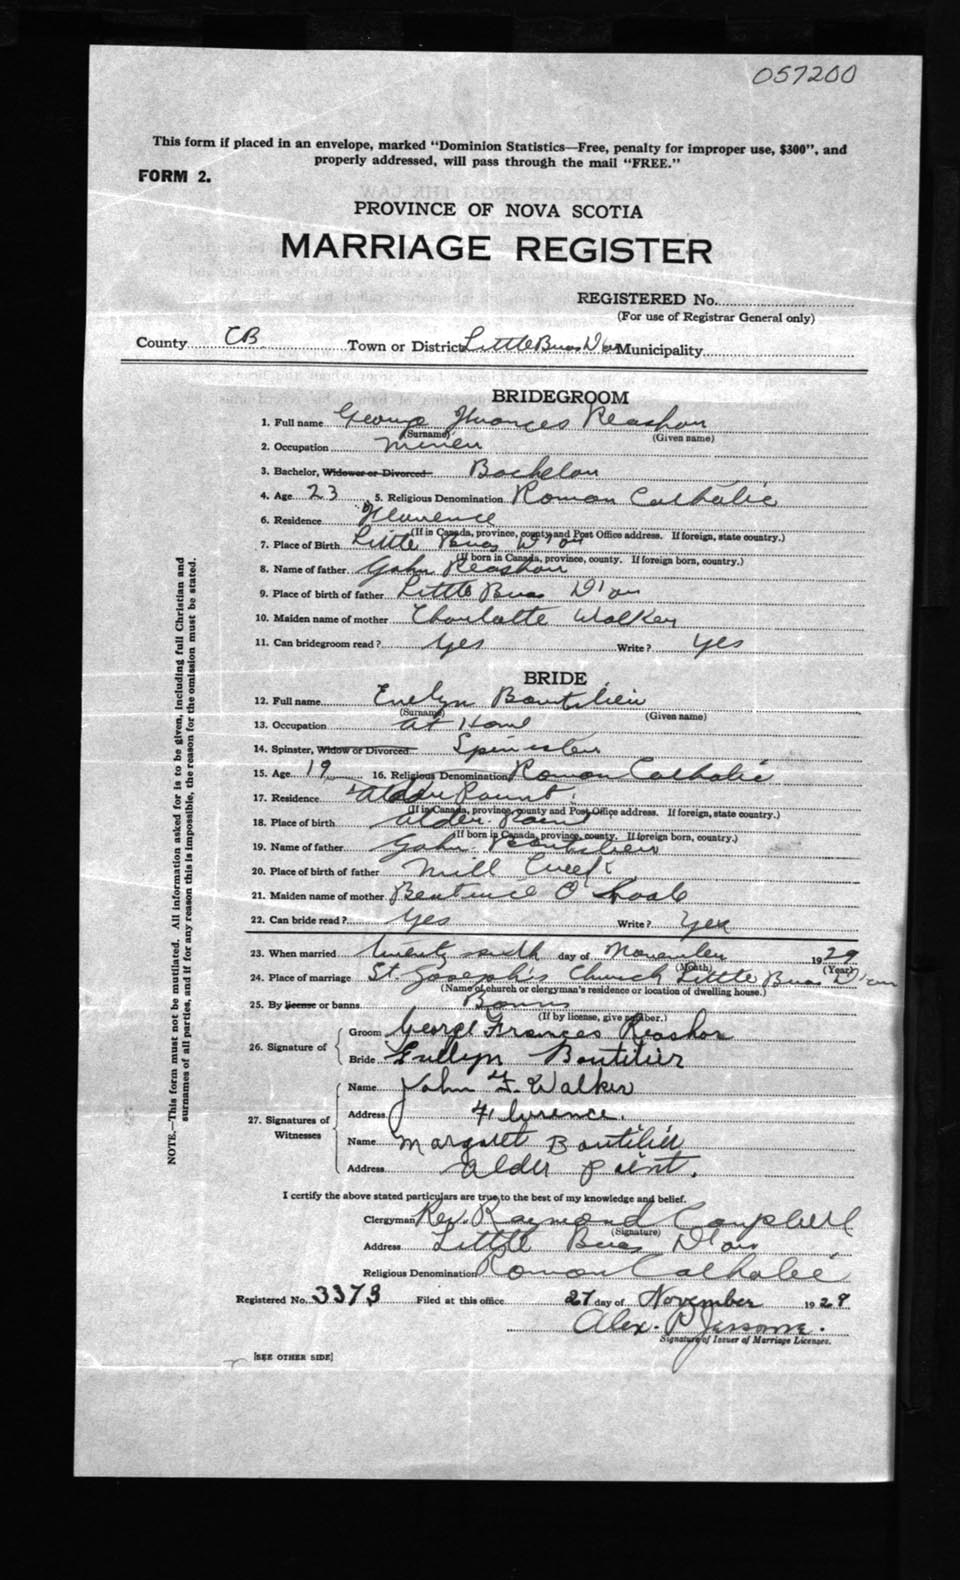 057200
This form if placed in an envelope, marked "Dominion Statistics—Free, penalty for improper use, $300", and
properly addressed, will pass through the mail "FREE."
FORM 2.
PROVINCE OF NOVA SCOTIA
MARRIAGE REGISTER
REGISTERED No.
(For use of Registrar General only)
County CB Town or District Little Bras D'or Municipality
BRIDEGROOM
1. Full name George Frances Reashor
(Surname) (Given name)
2. Occupation Miner
3. Bachelor, Widower or Divorced Bachelor
4. Age 23 5. Religious Denomination Roman Catholic
6. Residence Florence
(If in Canada, province, county and Post Office address. If foreign, state country.)
7. Place of Birth Little Bras D'or
(If born in Canada, province, county. If foreign born, country.)
8. Name of father John Reashor
9. Place of birth of father Little Bras D'or
10. Maiden name of mother Charlotte Walker
11. Can bridegroom read? Yes Write? Yes
BRIDE
12. Full name Evelyn Boutilier
(Surname) (Given name)
13. Occupation at Home
14. Spinster, Widow or Divorced Spinster
15. Age 19 16. Religious Denomination Roman Catholic
17. Residence Alder Point
(If in Canada, province, county and Post Office address. If foreign, state country.)
18. Place of birth Alder Point
(If born in Canada, province, county. If foreign born, country.)
19. Name of father John Boutilier
20. Place of birth of father Mill Creek
21. Maiden name of mother Beatrice O'
22. Can bride read? Yes Write? Yes
23. When married twenty sixth day of November 1929
(Month) (Year)
24. Place of marriage St. Joseph's Church Little Bras D'or
(Name of church or clergyman's residence or location of dwelling house.)
25. By license or banns Banns
(If by license, give number.)
26. Signature of
Groom George Frances Reashor
Bride Evellyn Boutilier
27. Signatures of Witnesses
Name John F. Walker
Address Florence.
Name Margaret Boutilier
Address Alder Point.
I certify the above stated particulars are true to the best of my knowledge and belief.
Clergyman Rev. Raymond Campbell
(Signature)
Address Little Bras D'or
Religious Denomination Roman Catholic
Registered No. 3373 Filed at this office 27 day of November 1929
Alex. P. Jessome.
Signature of Issuer of Marriage Licenses.
[SEE OTHER SIDE]
NOTE.—This form must not be mutilated. All information asked for is to be given, including full Christian and
surnames of all parties, and if for any reason this is impossible, the reason for the omission must be stated.